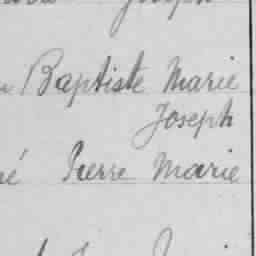 Baptiste Marie
Joseph
né Pierre Marie